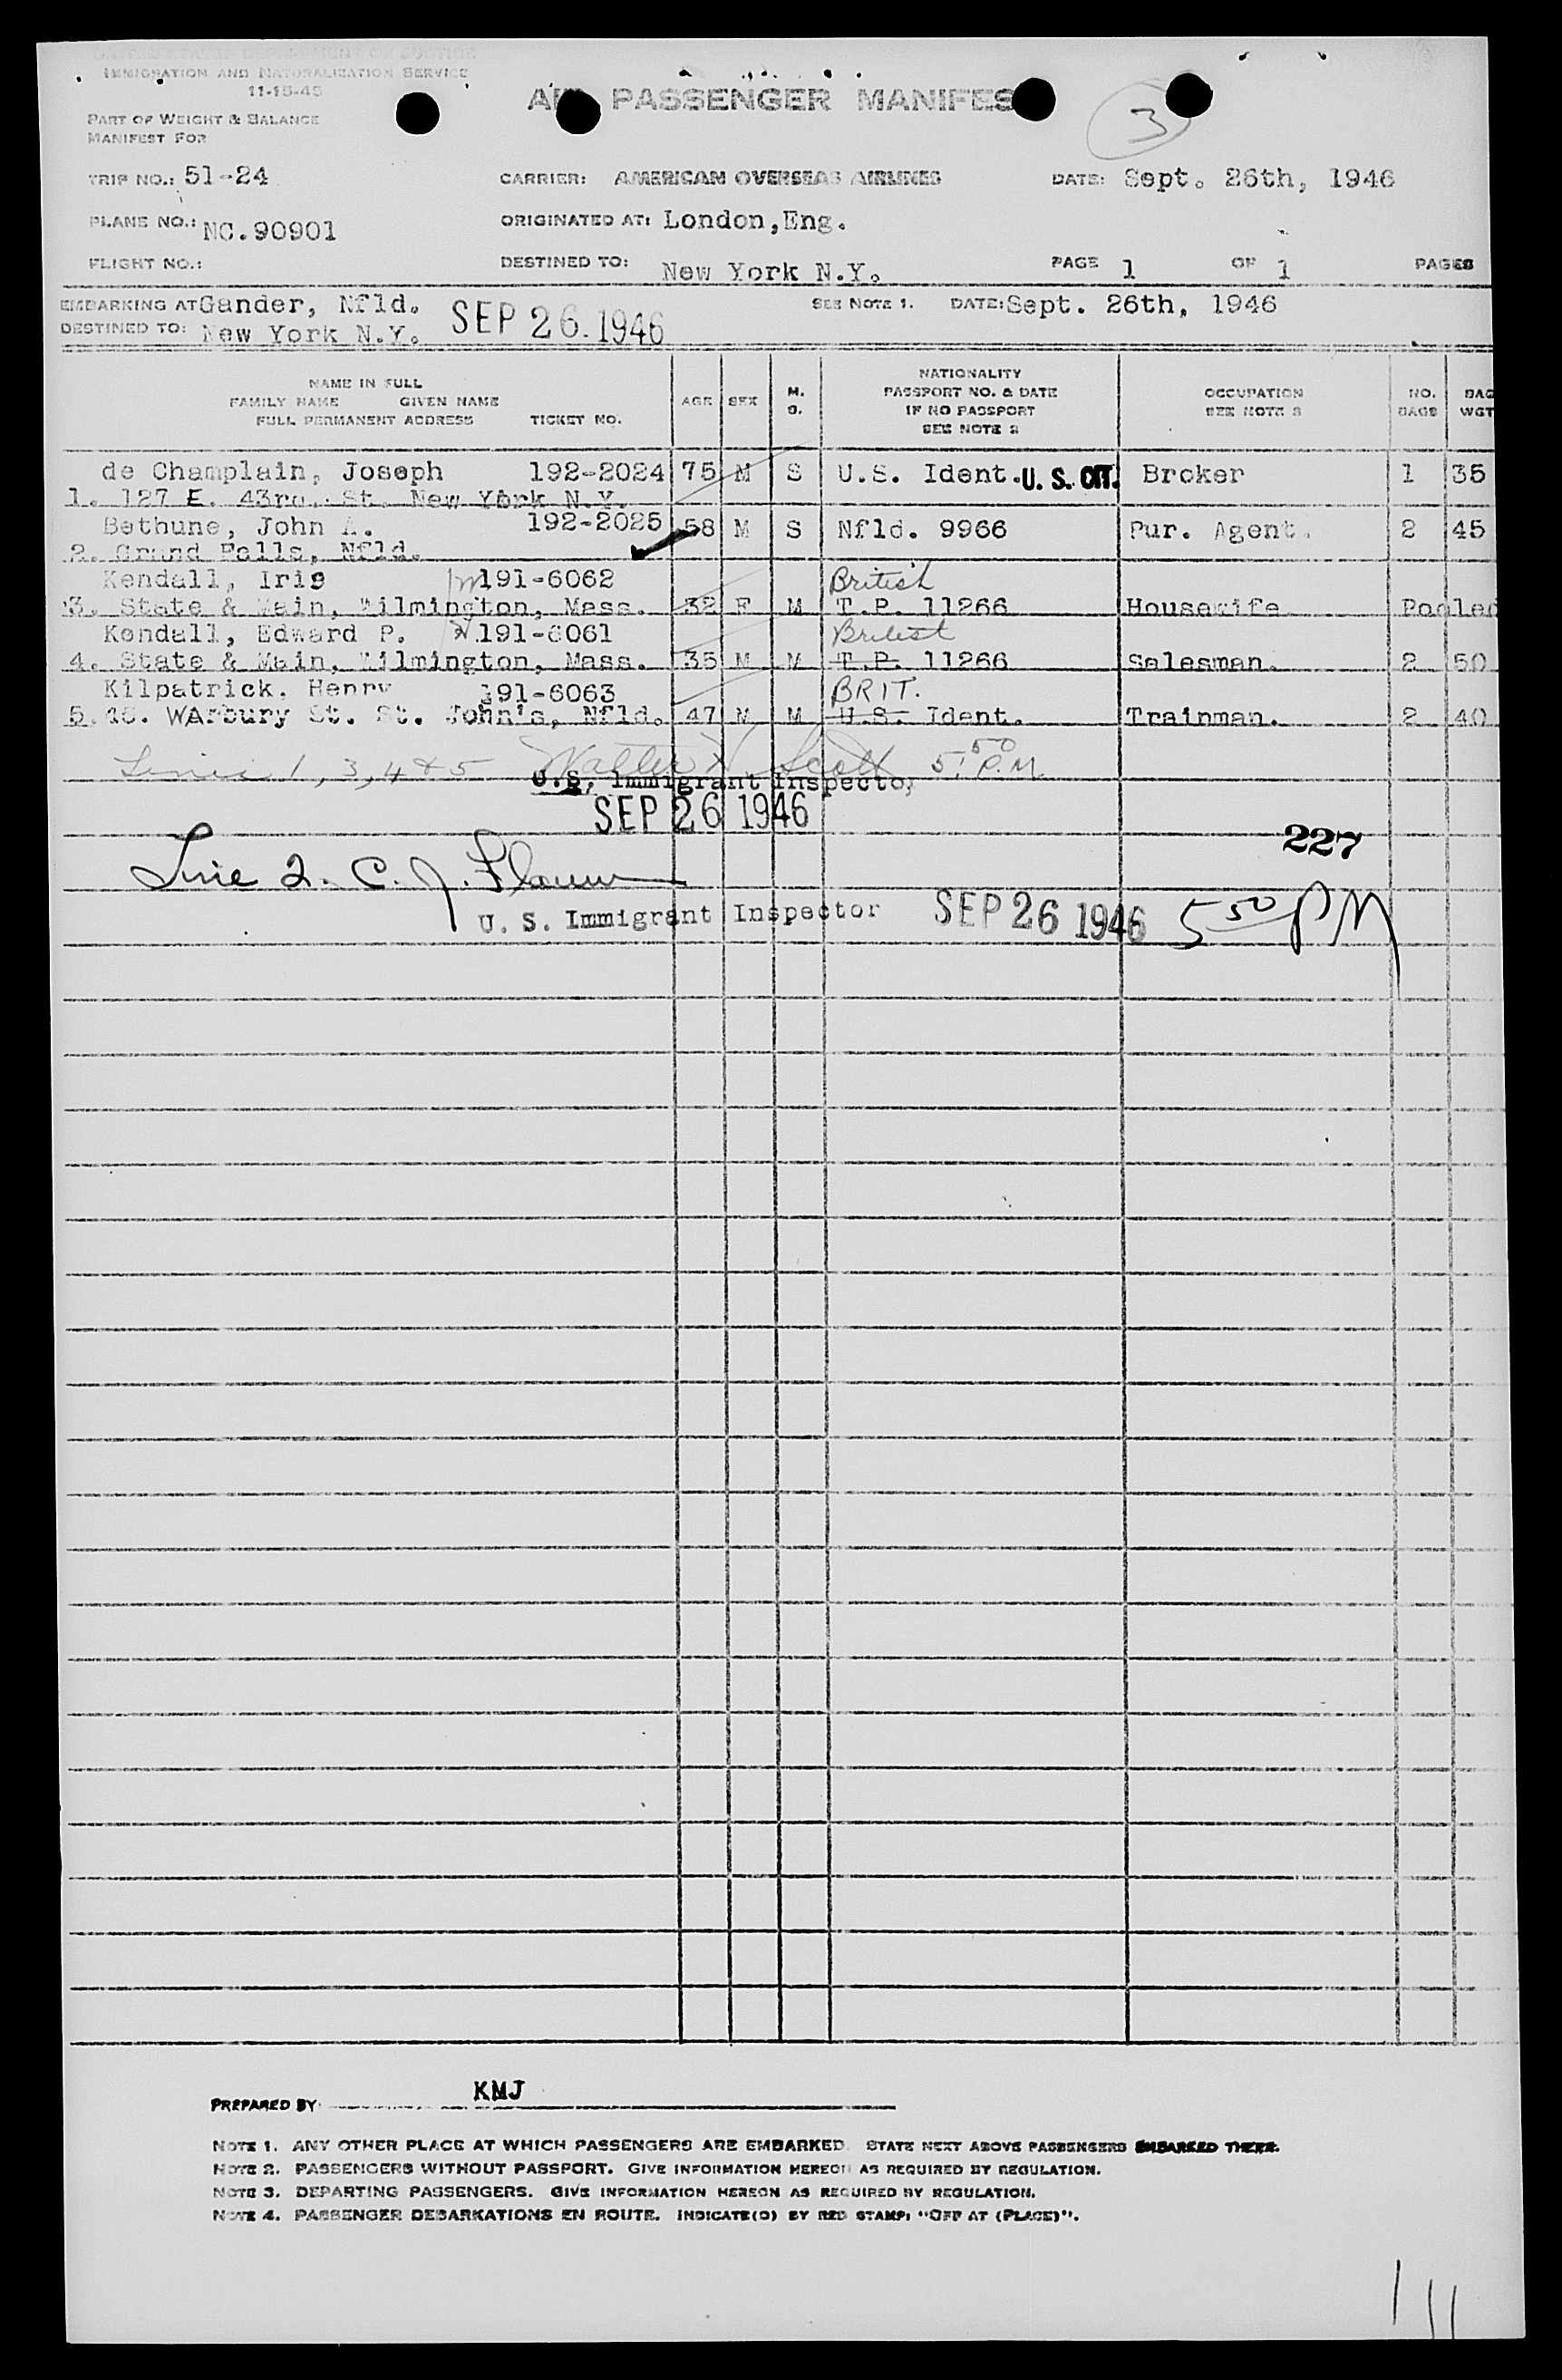 IMMIGRATION AND NATURALIZATION SERVICE
11-15-45
AIR PASSENGER MANIFES
3
PART OF WEIGHT & BALANCE
MANIFEST FOR
TRIP NO.: 51-24 CARRIER: AMERICAN OVERSEAS AIRLINES DATE: Sept. 26th, 1946
PLANE NO.: NC.90901 ORIGINATED AT: London,Eng.
FLIGHT NO.: DESTINED TO: New York N.Y. PAGE 1 OF 1 PAGES
EMBARKING AT Gander, Nfld. SEE NOTE 1. DATE: Sept. 26th, 1946
DESTINED TO: New York N.Y. SEP 26 1946
NAME IN FULL
FAMILY NAME GIVEN NAME
FULL PERMANENT ADDRESS TICKET NO.
AGE
SEX
M.
S.
NATIONALITY
PASSPORT NO. & DATE
IF NO PASSPORT
SEE NOTE 2
OCCUPATION
SEE NOTE 3
NO.
BAGS
BAG
WGT
de Champlain, Joseph 192-2024 75 M S U.S. Ident. U. S. CIT. Broker 1 35
1. 127 E. 43rd. St. New York N.Y.
Bethune, John A. 192-2025 58 M S Nfld. 9966 Pur. Agent. 2 45
2. Grand Falls, Nfld.
Kendall, Iris 191-6062 British
3. State & Main, Wilmington, Mass. 32 F M T.P. 11266 Housewife Pooled
Kendall, Edward P. 191-6061 British
4. State & Main, Wilmington, Mass. 35 M M T.P. 11266 Salesman. 2 50
Kilpatrick. Henry 191-6063 BRIT.
5. 46. WArbury St. St. John's, Nfld. 47 M M U.S. Ident. Trainman. 2 40
Lines 1, 3, 4 & 5 Walter Scott 5:50 P.M.
U.S. Immigrant Inspector
SEP 26 1946
227
Line 2. C. J.
U. S. Immigrant Inspector SEP 26 1946 5 50 PM
PREPARED BY KMJ
NOTE 1. ANY OTHER PLACE AT WHICH PASSENGERS ARE EMBARKED. STATE NEXT ABOVE PASSENGERS EMBARKED THERE.
NOTE 2. PASSENGERS WITHOUT PASSPORT. GIVE INFORMATION HEREON AS REQUIRED BY REGULATION.
NOTE 3. DEPARTING PASSENGERS. GIVE INFORMATION HEREON AS REQUIRED BY REGULATION.
NOTE 4. PASSENGER DEBARKATIONS EN ROUTE. INDICATE(D) BY RED STAMP: "OFF AT (PLACE)".